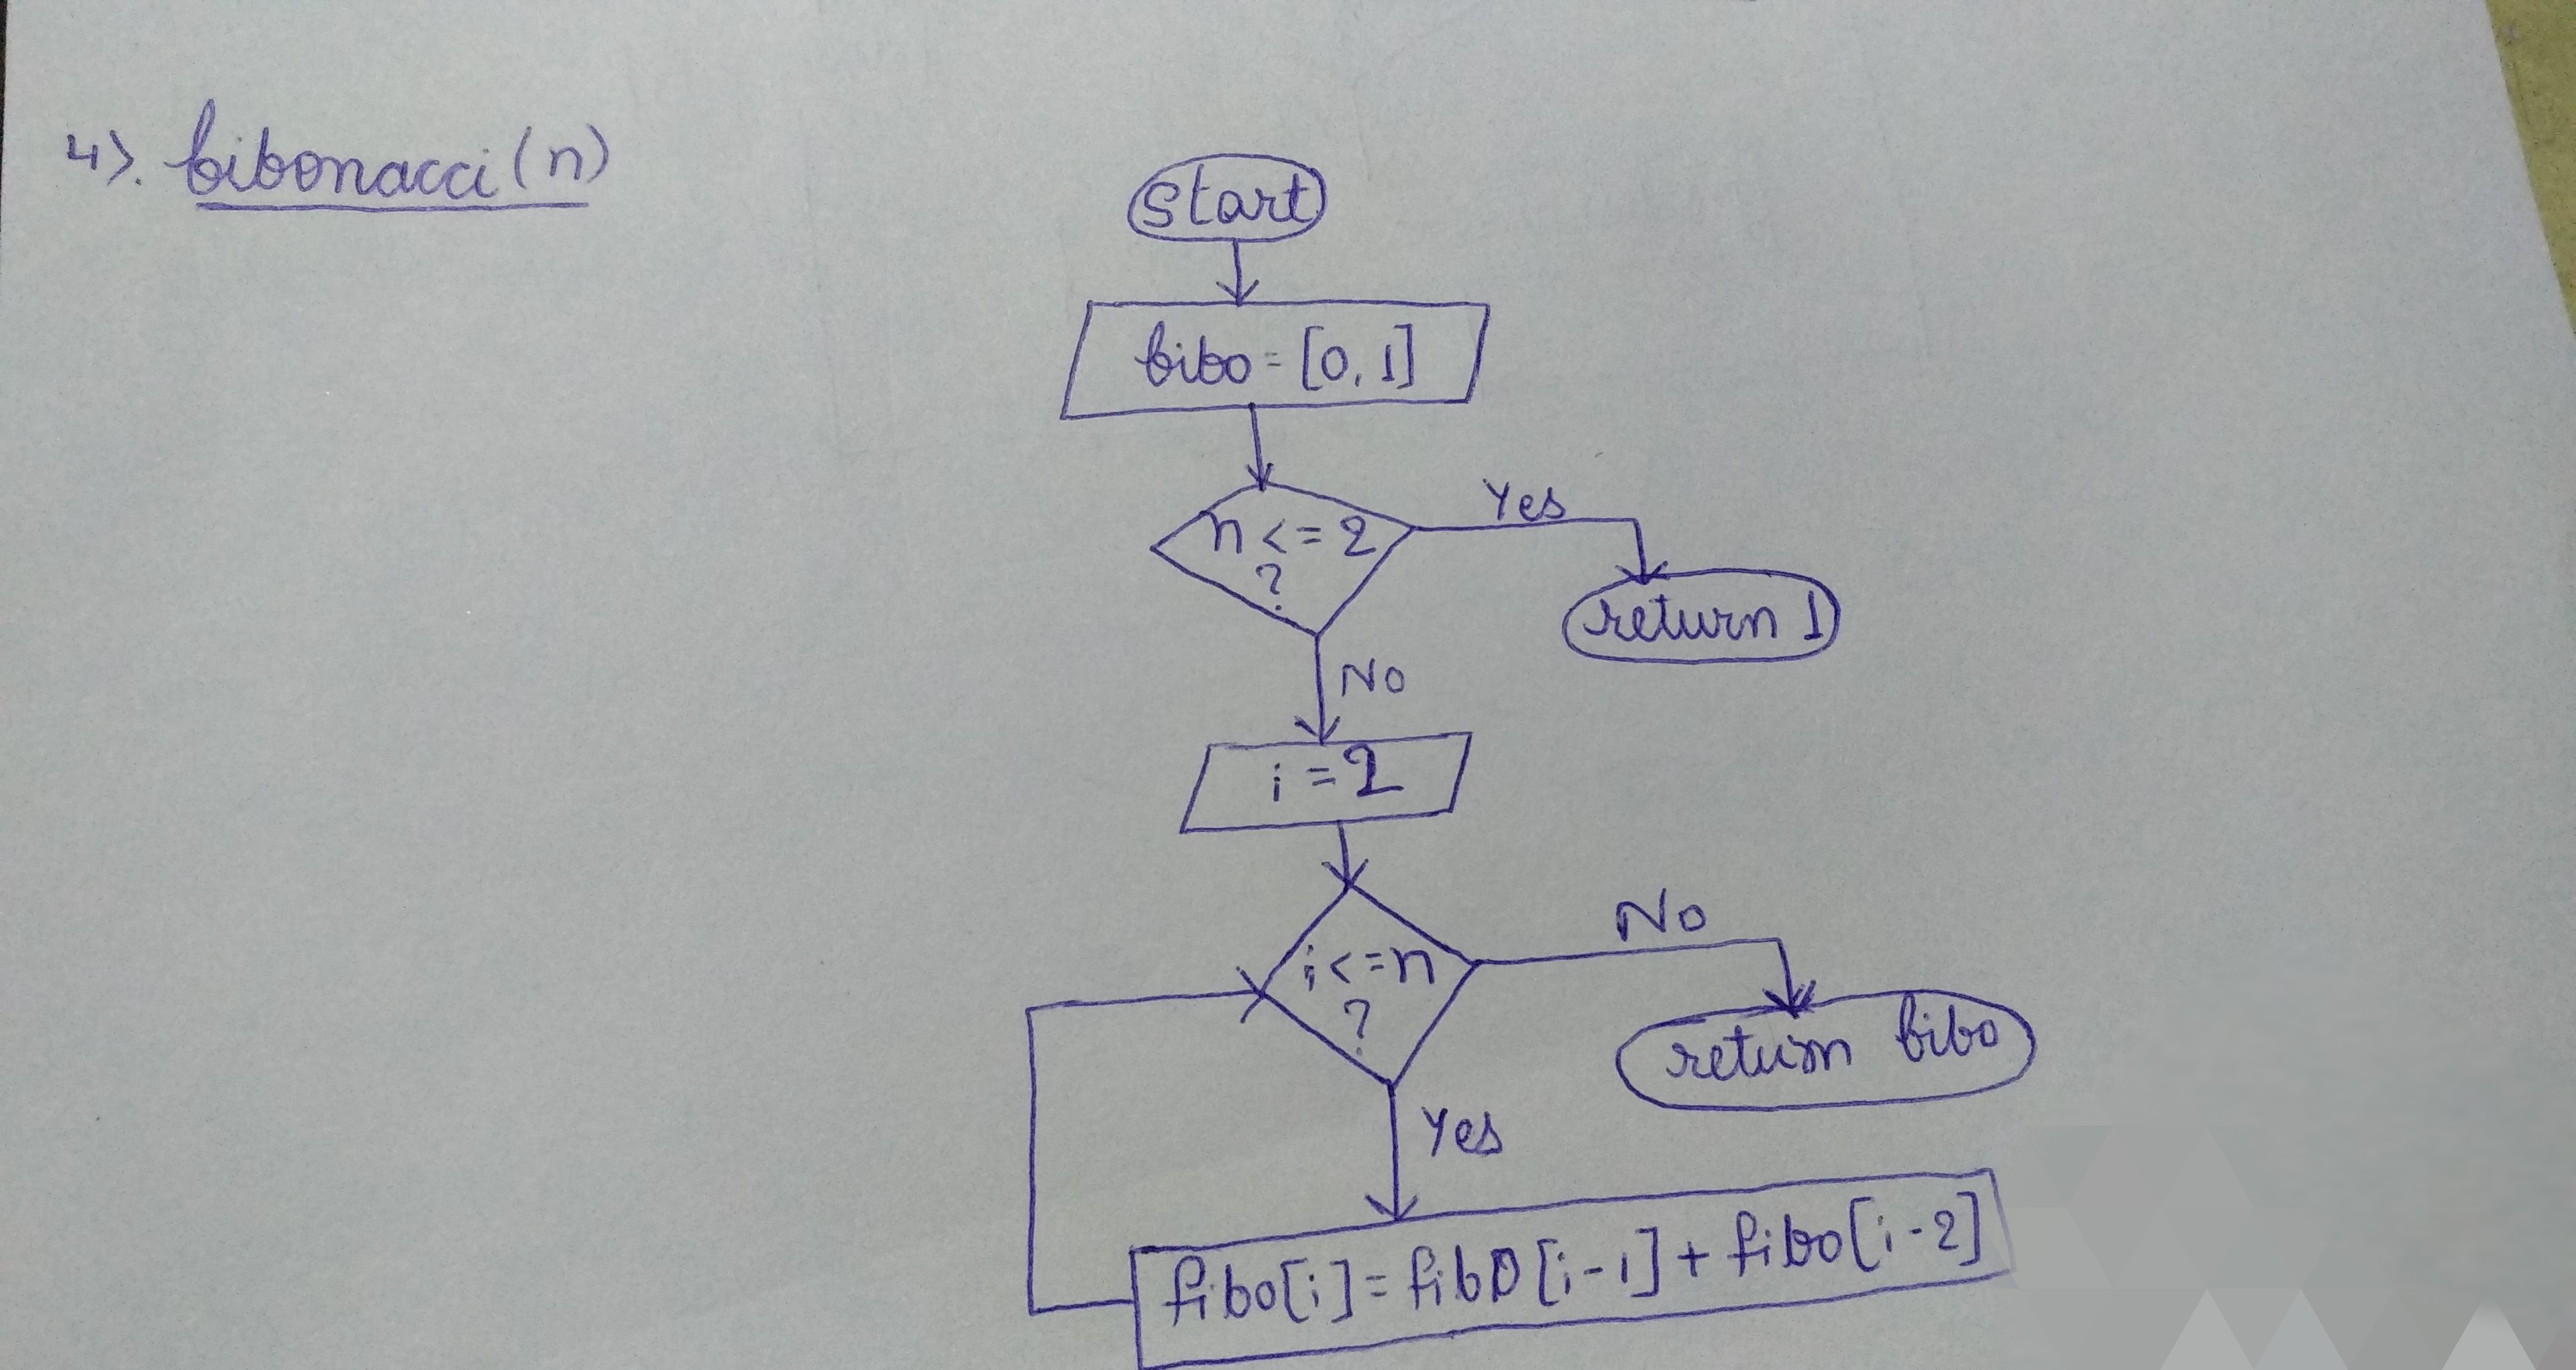 4). fibonacci(n)
start
fibo = [0, 1]
n <= 2
?
Yes
return 1
No
i = 2
i <= n
?
No
return fibo
Yes
fibo[i] = fibo[i-1] + fibo[i-2]